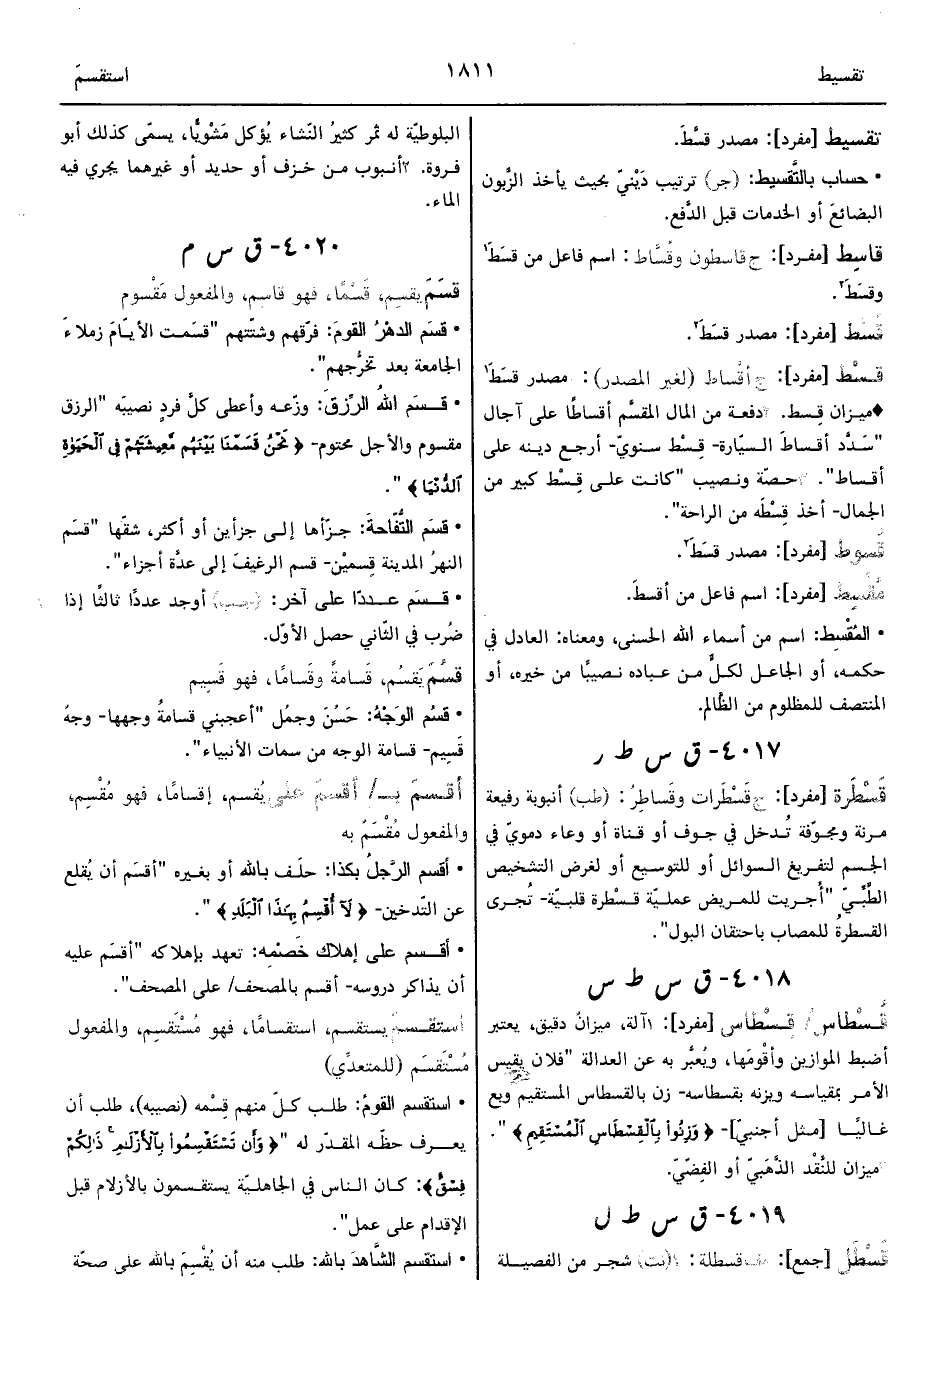 تقسيط
١٨١١
استقسمَ
تقسيط [مفرد]: مصدر قسَّطَ.
• حساب بالتَّقسيط: (جر) ترتيب دَيْنيّ بحيث يأخذ الزَّبون
البضائعَ أو الخدمات قبل الدَّفع.
قاسِط [مفرد]: ج قاسطون وقُسَّاط: اسم فاعل من قسَطَ١
وقسَطَ٢.
قَسْط [مفرد]: مصدر قسَطَ٢.
قِسْط [مفرد]: ج أقْساط (لغير المصدر): مصدر قسَطَ١
♦ميزان قِسط. دفعة من المال المقسَّم أقساطًا على آجال
"سَدَّد أقساطَ السيّارة- قِسْط سنويّ- أرجع دينه على
أقساط". حصّة ونصيب "كانت على قِسْط كبير من
الجمال- أخذ قِسْطَه من الراحة".
قُسوط [مفرد]: مصدر قسَطَ٢.
مُقْسِط [مفرد]: اسم فاعل من أقسطَ.
• المُقْسِط: اسم من أسماء الله الحسنى، ومعناه: العادل في
حكمه، أو الجاعل لكلٍّ من عباده نصيبًا من خيره، أو
المنتصف للمظلوم من الظَّالم.
٤٠١٧- ق س ط ر
قَسْطَرة [مفرد]: ج قَسْطَرات وقَساطِرُ: (طب) أنبوبة رفيعة
مرنة ومجوّفة تُدخل في جوف أو قناة أو وعاء دمويّ في
الجسم لتفريغ السوائل أو للتوسيع أو لغرض التشخيص
الطِّبِّيّ "أُجريت للمريض عمليّة قسْطرة قلبيّة- تُجرى
القسطرةُ للمصاب باحتقان البول".
٤٠١٨- ق س ط س
قُسْطاس/ قِسْطاس [مفرد]: ١آلة، ميزانٌ دقيق، يعتبر
أضبط الموازين وأقْومَها، ويُعبَّر به عن العدالة "فلان يقيس
الأمر بمقياسه ويزنه بقسطاسه- زن بالقسطاس المستقيم وبع
غاليًا [مثل أجنبيّ]- ﴿وَزِنُوا بِالْقِسْطَاسِ الْمُسْتَقِيمِ﴾".
ميزان للنَّقْد الذَّهَبيّ أو الفِضّيّ.
٤٠١٩- ق س ط ل
قَسْطَل [جمع]: مف قسطلة: ١(نت) شجر من الفصيلة
البلوطيّة له ثمر كثيرُ النَّشاء يُؤكل مَشْويًّا، يسمّى كذلك أبو
فروة. ٢أنبوب من خزف أو حديد أو غيرهما يجري فيه
الماء.
٤٠٢٠- ق س م
قسَمَ يقسِم، قَسْمًا، فهو قاسِم، والمفعول مَقْسوم
• قسَم الدهْرُ القومَ: فرّقهم وشتّتهم "قسَمت الأيّامُ زملاءَ
الجامعة بعد تخرُّجهم".
• قسَم اللهُ الرِّزقَ: وزّعه وأعطى كلَّ فردٍ نصيبَه "الرزق
مقسوم والأجل محتوم- ﴿نَحْنُ قَسَمْنَا بَيْنَهُمْ مَعِيشَتَهُمْ فِي الْحَيَوٰةِ
الدُّنْيَا﴾".
• قسَم التُّفاحةَ: جزّأها إلى جزأين أو أكثر، شقّها "قسَم
النهرُ المدينة قِسميْن- قسم الرغيفَ إلى عدّة أجزاء".
• قسَم عددًا على آخر: (جب) أوجد عددًا ثالثًا إذا
ضُرب في الثّاني حصل الأوّل.
قسُمَ يَقسُم، قَسامةً وقَسامًا، فهو قَسِيم
• قسُم الوَجْهُ: حَسُنَ وجمُل "أعجبني قسامةُ وجهها- وجهُ
قَسِيم- قسامة الوجه من سمات الأنبياء".
أقسمَ بـ/ أقسمَ على يُقسم، إقسامًا، فهو مُقْسِم،
والمفعول مُقْسَمٌ به
• أقسم الرَّجلُ بكذا: حلَف بالله أو بغيره "أقسَم أن يُقلع
عن التّدخين- ﴿لَآ أُقْسِمُ بِهَٰذَا الْبَلَدِ﴾".
• أقسم على إهلاك خَصْمِه: تعهد بإهلاكه "أقسَم عليه
أن يذاكر دروسه- أقسم بالمصحف/ على المصحف".
استقسمَ يستقسم، استقسامًا، فهو مُسْتَقسِم، والمفعول
مُسْتَقسَم (للمتعدِّي)
• استقسم القومُ: طلب كلّ منهم قِسْمه (نصيبه)، طلب أن
يعرف حظّه المقدّر له "﴿وَأَن تَسْتَقْسِمُوا بِالْأَزْلَٰمِ ذَٰلِكُمْ
فِسْقٌ﴾: كان الناس في الجاهليّة يستقسمون بالأزلام قبل
الإقدام على عمل".
• استقسم الشَّاهدَ بالله: طلب منه أن يُقْسِمَ بالله على صحّة